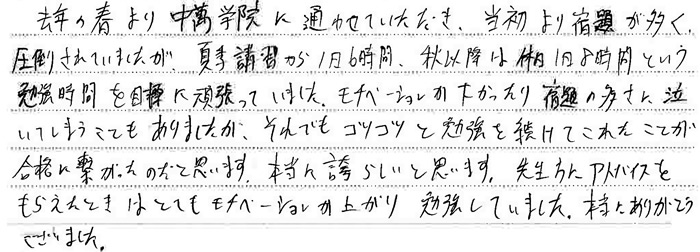 去年の春より中萬学院に通わせていただき、当初より宿題が多く、
圧倒されていましたが、夏季講習から1日6時間、秋以降は休日1日8時間という
勉強時間を目標に頑張っていました。モチベーションが下がったり宿題の多さに泣
いてしまうこともありましたが、それでもコツコツと勉強を続けてこれたことが
合格に繋がったのだと思います。本当に誇らしいと思います。先生方にアドバイスを
もらえたときはとてもモチベーションが上がり勉強していました。本当にありがとう
ございました。